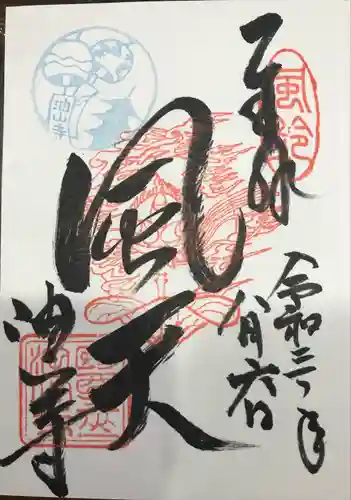 奉拝
風鈴
令和三年
八月六日
風天
油山寺
油山寺